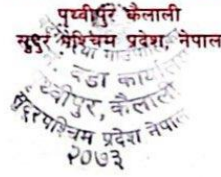 पृथ्वीपुर कैलाली
सुदुर पश्चिम प्रदेश, नेपाल
वडा कार्यालय
पृथ्वीपुर, कैलाली
सुदुरपश्चिम प्रदेश नेपाल
२०७३